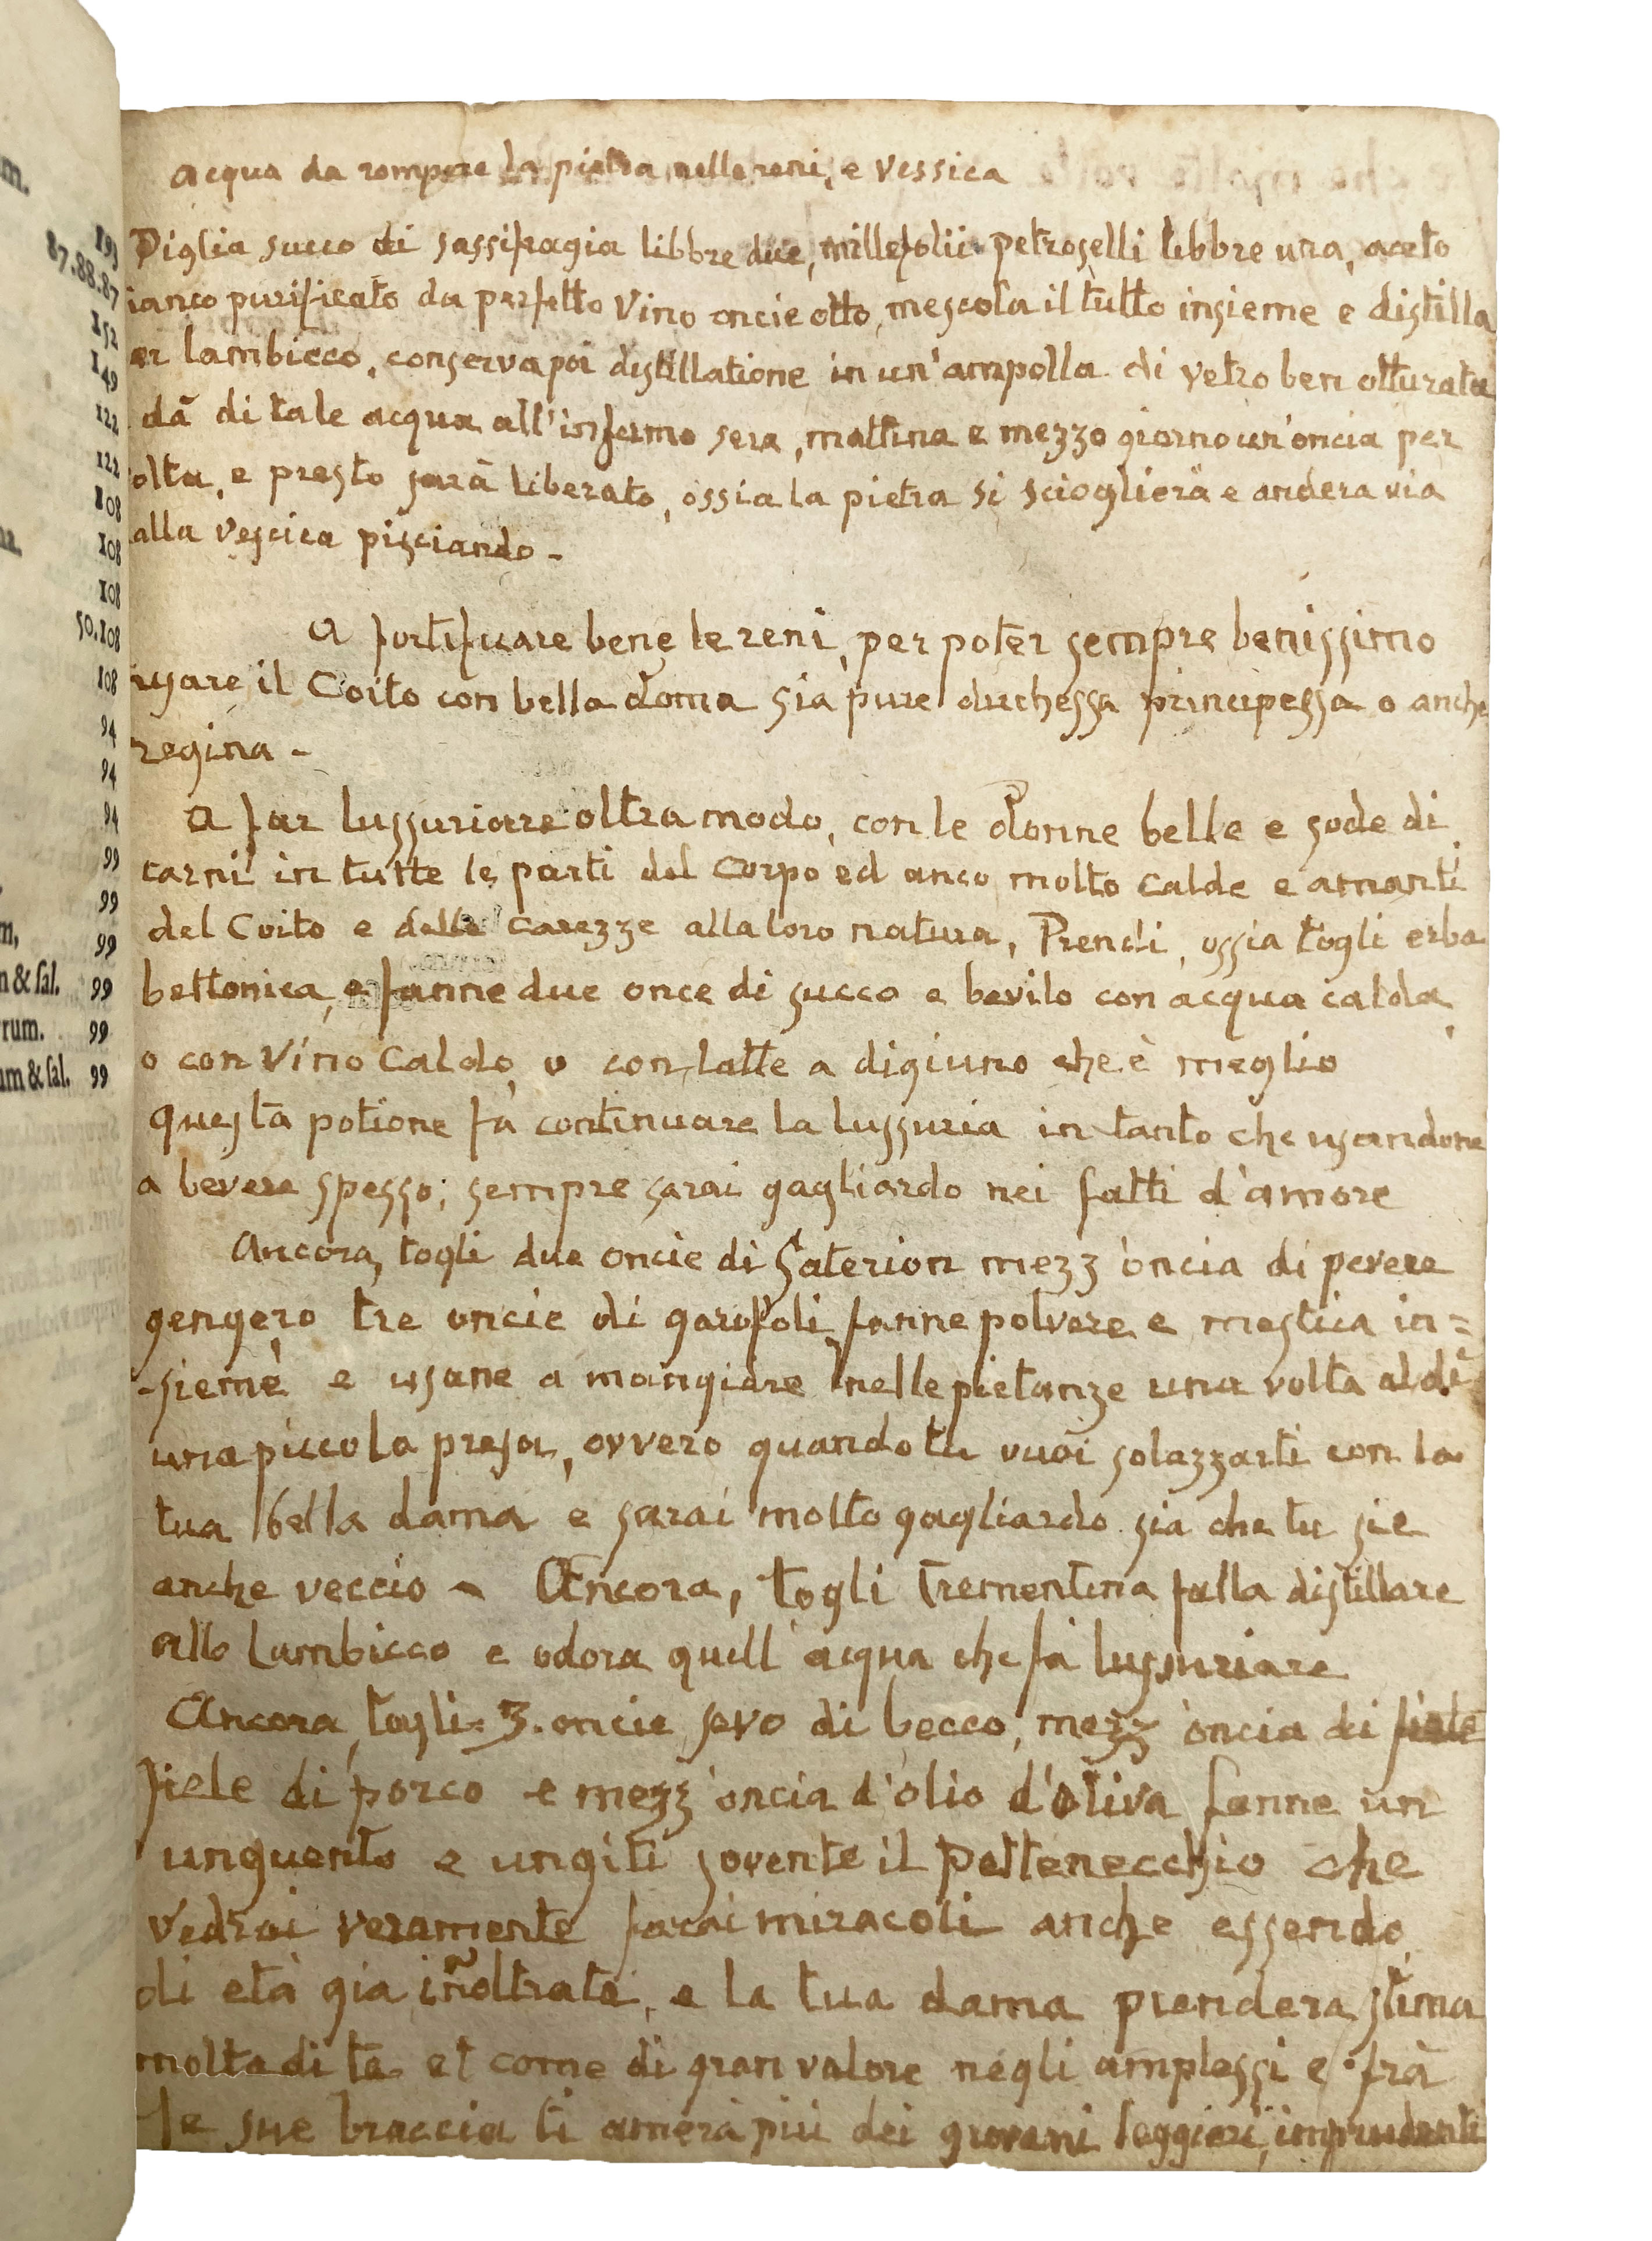 m.
193
87.88.87
152
149
122
122
108
108
108
50.108
108
94
94
94
99
99
m, 99
n & sal. 99
rum. 99
um & sal. 99
Acqua da rompere la pietra nelle reni, e vessica
Piglia succo di sassifragia libbre due, millefolii petroselli libbre una, aceto
ianco purificato da perfetto Vino oncie otto, mescola il tutto insieme e distilla
er lambicco, conserva poi distillatione in un'ampolla di vetro ben otturata
dà di tale acqua all'infermo sera, mattina e mezzo giorno un'oncia per
olta, e presto sarà liberato, ossia la pietra si scioglierà e andera via
alla vescica pisciando -
A fortificare bene le reni, per poter sempre benissimo
usare il Coito con bella donna sia pure duchessa principessa o anche
regina -
A far lussuriare oltra modo, con le donne belle e sode di
carni in tutte le parti del corpo ed anco molto calde e amanti
del Coito e delle carezze alla loro natura, Prendi, ossia togli erba
bettonica, e fanne due once di succo e bevilo con acqua calda,
o con Vino Caldo, o con latte a digiuno che è meglio
questa potione fa continuare la lussuria in tanto che usandone
a bevere spesso; sempre sarai gagliardo nei fatti d'amore
Ancora, togli due oncie di Saterion mezz'oncia di pevere
gengero tre oncie di garofoli, fanne polvere e mestica in=
-sieme e usane a mangiare nelle pietanze una volta al dì
una piccola presa, ovvero quando tu vuoi solazzarti con la
tua bella dama e sarai molto gagliardo sia che tu sie
anche veccio - Ancora, togli trementina falla distillare
allo lambicco e odora quell'acqua che fa lussuriare
Ancora, togli 3. oncie sevo di becco, mezz'oncia di fiele
fiele di porco e mezz'oncia d'olio d'oliva fanne un
unguento e ungiti sovente il pettenecchio che
vedrai veramente farai miracoli anche essendo
di età gia iñoltrata, e la tua dama prendera stima
molta di te et come di gran valore negli amplessi e frà
le sue braccia ti amerà più dei giovani leggieri, imprudenti